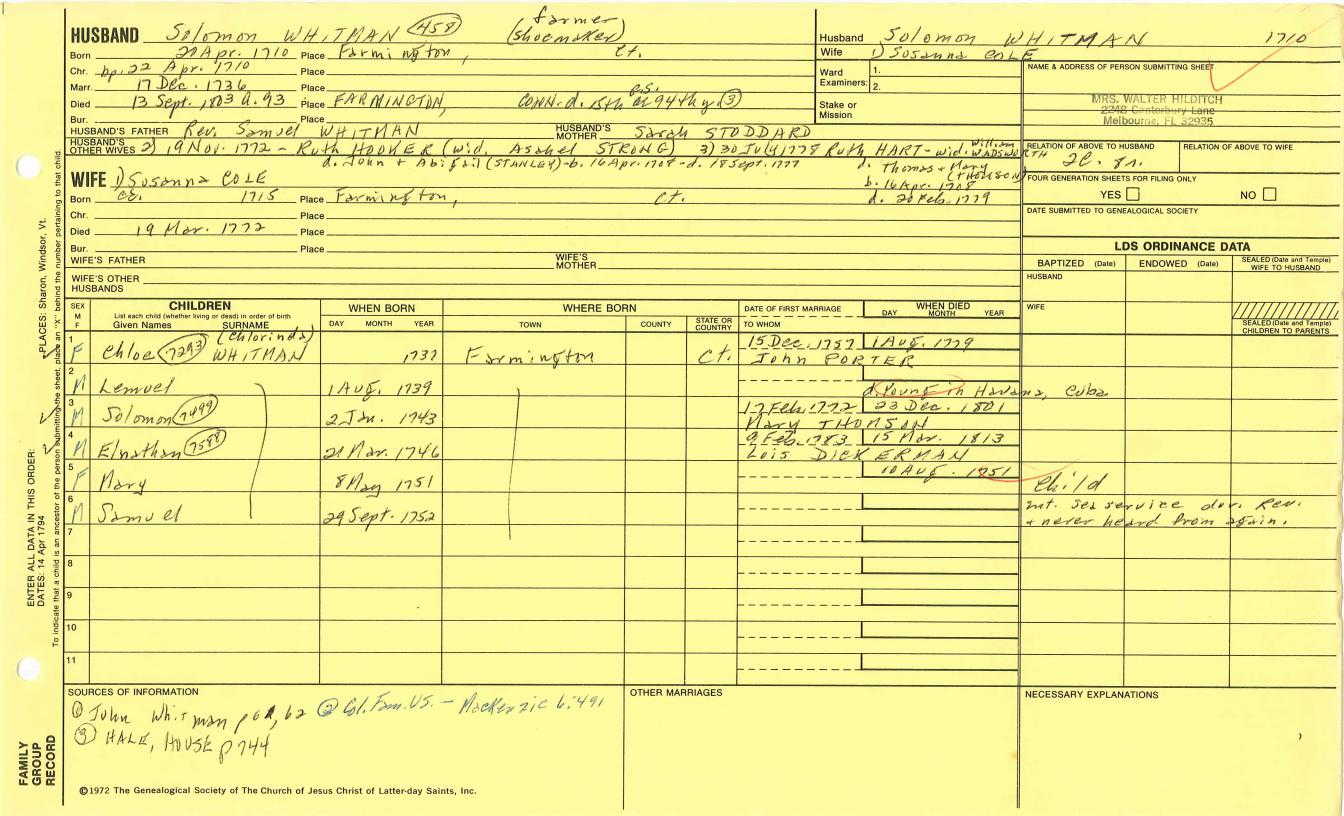 HUSBAND Solomon WHITMAN 458 farmer (shoemaker)
Born 20 Apr. 1710 Place Farmington, Ct.
Chr. bp. 22 Apr. 1710 Place
Marr. 17 Dec. 1736 Place
Died 13 Sept. 1803 a. 93 Place FARMINGTON, CONN. d. 15th at 94th y. 3
Bur. Place
HUSBAND'S FATHER Rev. Samuel WHITMAN HUSBAND'S MOTHER Sarah STODDARD
HUSBAND'S OTHER WIVES 2) 19 Nov. 1772 - Ruth HOOKER (wid. Asahel STRONG) 3) 30 July 1778 Ruth HART - wid. William WADSWORTH
d. John + Abigail (STANLEY) - b. 16 Apr. 1708 - d. 18 Sept. 1777 d. Thomas + Mary (THOMSON)
b. 16 Apr. 1708
d. 20 Feb. 1779
WIFE 1) Susanna COLE
Born ca. 1715 Place Farmington, Ct.
Chr. Place
Died 19 Mar. 1772 Place
Bur. Place
WIFE'S FATHER WIFE'S MOTHER
WIFE'S OTHER HUSBANDS
Husband Solomon WHITMAN 1710
Wife 1) Susanna COLE
Ward Examiners: 1.
2.
Stake or Mission
NAME & ADDRESS OF PERSON SUBMITTING SHEET
MRS. WALTER HILDITCH
2248 Canterbury Lane
Melbourne, FL 32935
RELATION OF ABOVE TO HUSBAND RELATION OF ABOVE TO WIFE
FOUR GENERATION SHEETS FOR FILING ONLY
YES NO
DATE SUBMITTED TO GENEALOGICAL SOCIETY
LDS ORDINANCE DATA
BAPTIZED (Date) ENDOWED (Date) SEALED (Date and Temple) WIFE TO HUSBAND
HUSBAND
WIFE
SEALED (Date and Temple) CHILDREN TO PARENTS
SEX M F CHILDREN WHEN BORN WHERE BORN DATE OF FIRST MARRIAGE WHEN DIED
List each child (whether living or dead) in order of birth
Given Names SURNAME DAY MONTH YEAR TOWN COUNTY STATE OR COUNTRY TO WHOM DAY MONTH YEAR
1 F Chloe 7293 (Chlorinda) WHITMAN 1737 Farmington Ct. 15 Dec. 1757 1 Aug. 1779
John PORTER
2 M Lemuel 1 Aug. 1739 d. young in Havana, Cuba
3 M Solomon 7499 2 Jan. 1743 17 Feb. 1772 23 Dec. 1801
Mary THOMSON
4 M Elnathan 7588 21 Mar. 1746 9 Feb. 1783 15 Mar. 1813
Lois DICKERMAN
5 F Mary 8 May 1751 10 Aug. 1751 Child
6 M Samuel 29 Sept. 1752 ent. sea service dur. Rev.
+ never heard from again.
7
8
9
10
11
SOURCES OF INFORMATION
1 John Whitman p 61, 62 2 Col. Fam. U.S. - MacKenzie 6:491
3 HALE, HOUSE p 744
OTHER MARRIAGES
NECESSARY EXPLANATIONS
©1972 The Genealogical Society of The Church of Jesus Christ of Latter-day Saints, Inc.
FAMILY GROUP RECORD
ENTER ALL DATA IN THIS ORDER:
DATES: 14 Apr 1794 PLACES: Sharon, Windsor, Vt.
To indicate that a child is an ancestor of the person submitting the sheet, place an "X" behind the number pertaining to that child.